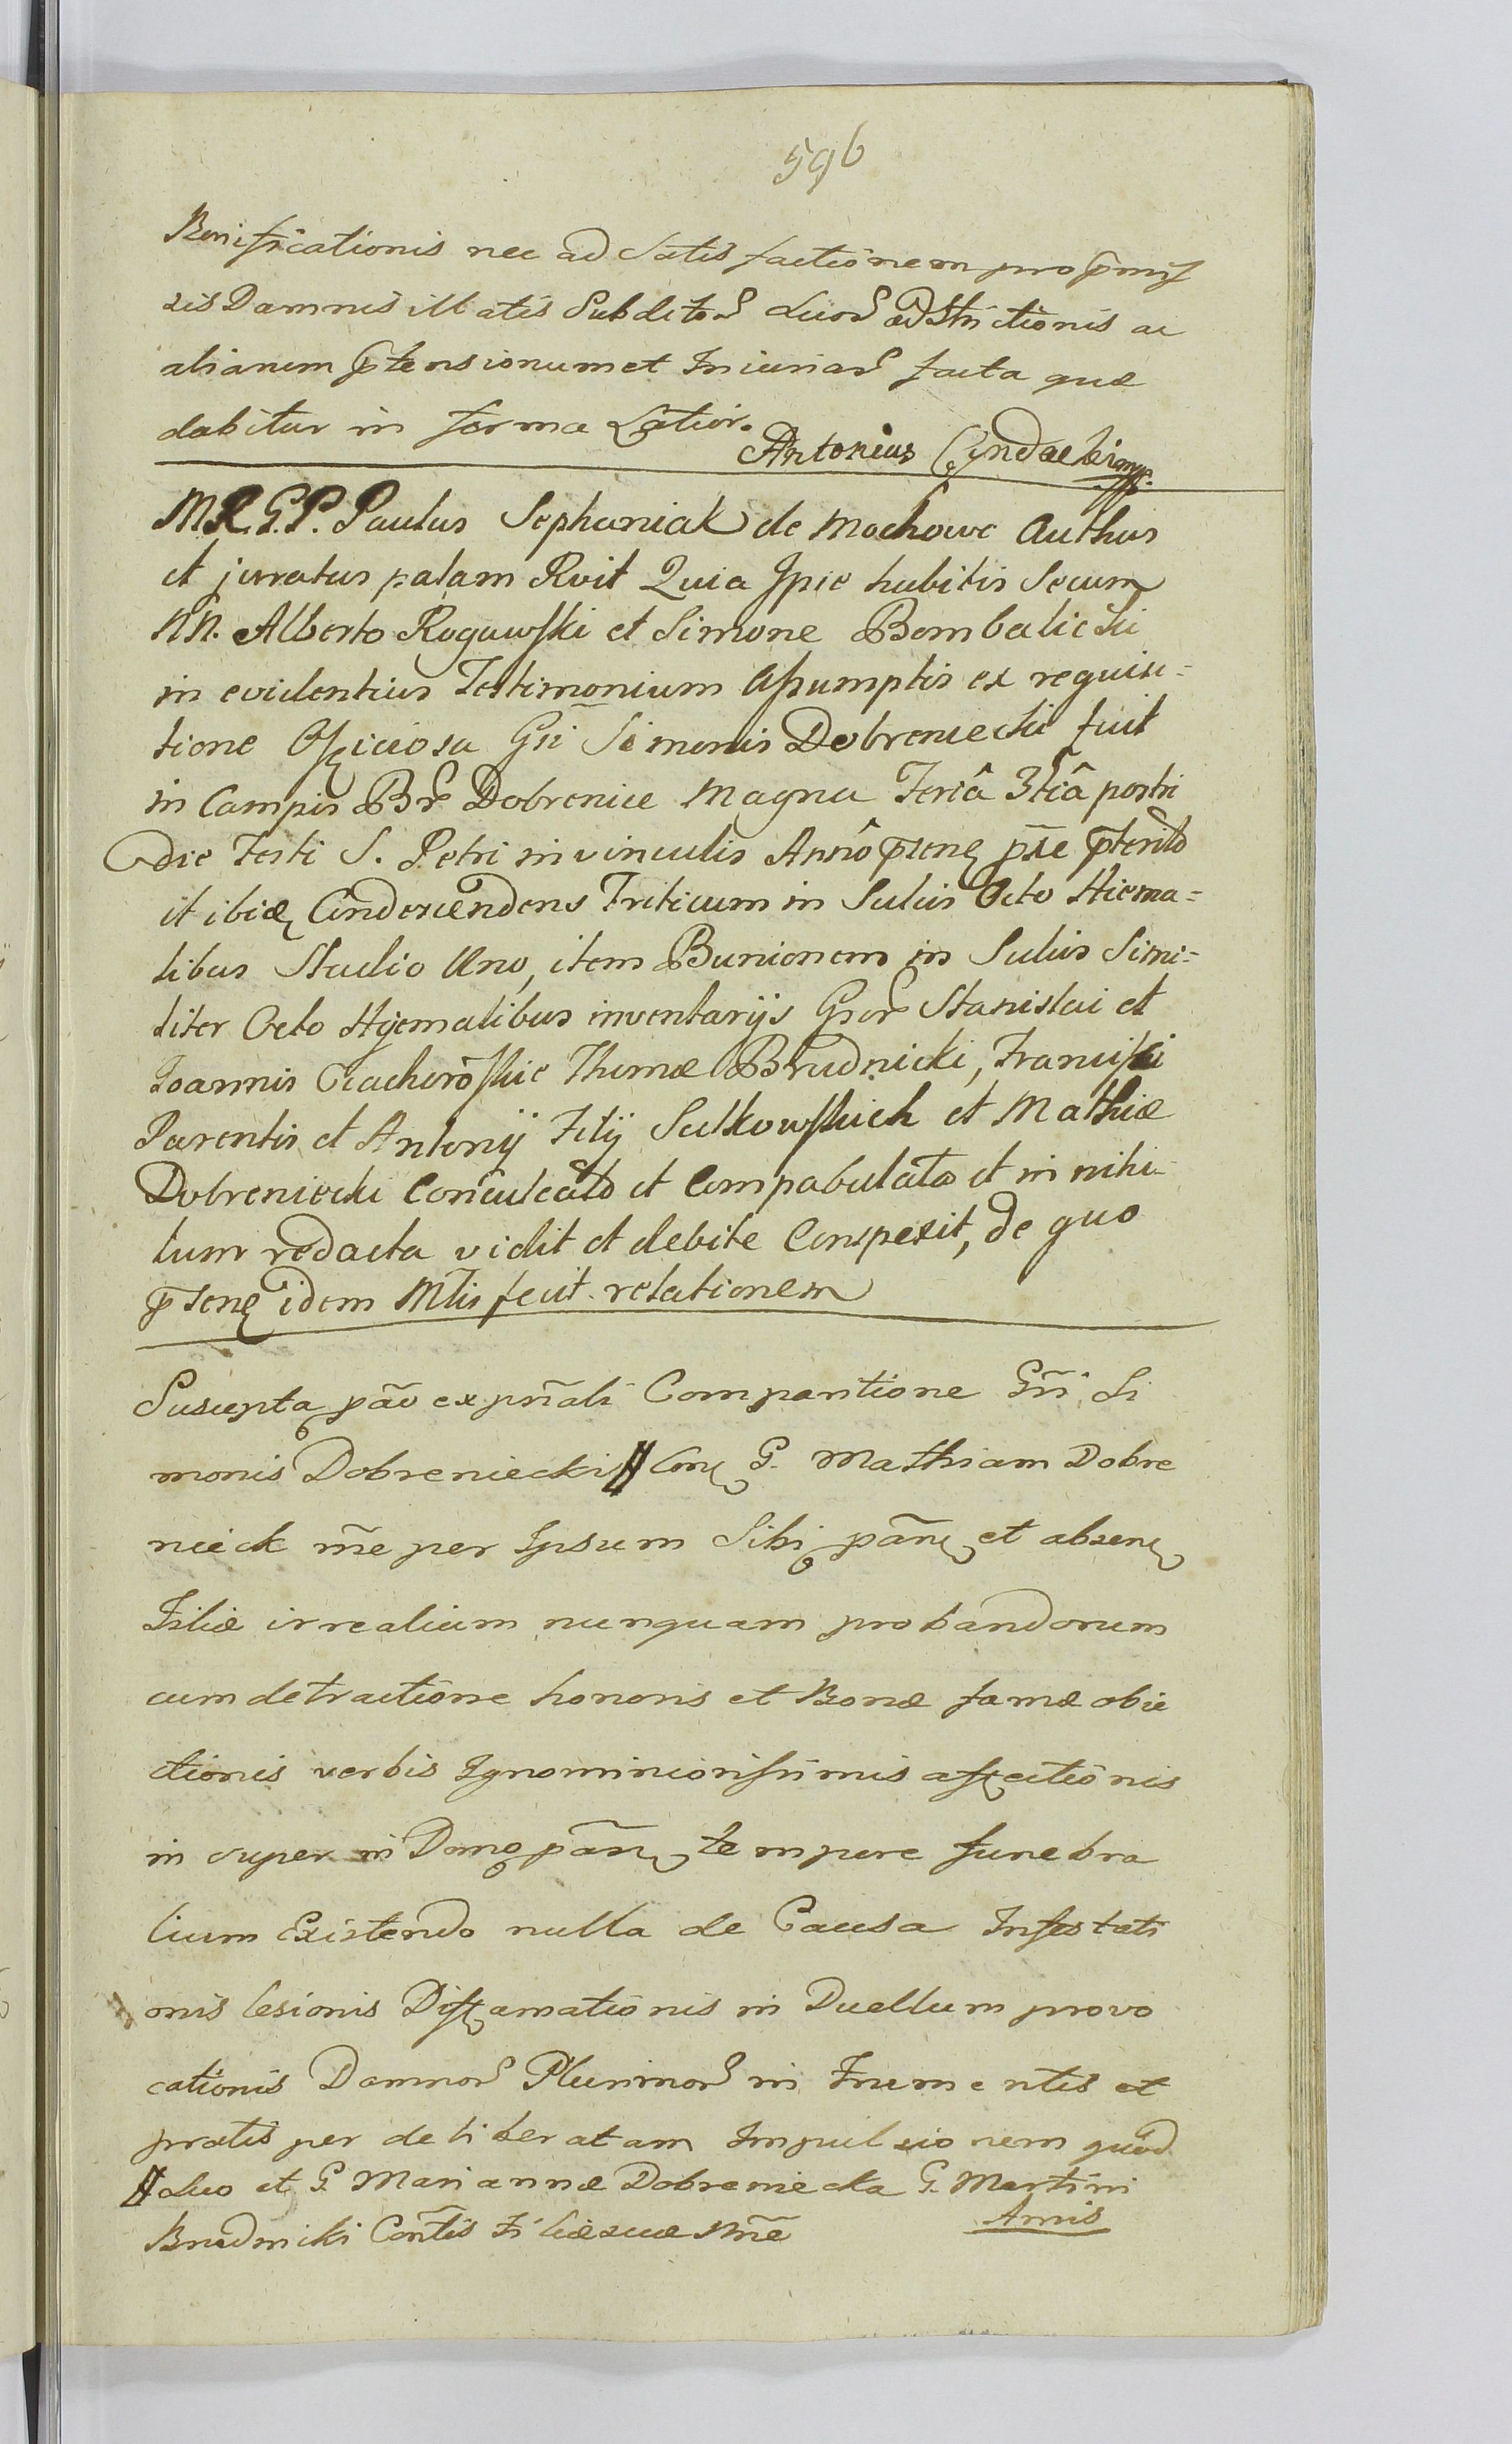 596
Bonificationis nec ad Satisfactionem pro p̃mis
sis Damnis illatis Subditor̃ Suor̃ adstrictionis ac
aliarum p̃tensionum et Iniuriar̃ facta quæ
dabitur in forma Latior.
Antonius
M R. G. P. Paulus Sephaniak de Mochowe Authus
et juratus palam Rvit Quia Ipse habitis Secum
NN. Alberto Rogawski et Simone Bombalicki
in evidentius Testimonium Assumptis ex requisi=
tione Officiosa Gsi Simonis Dobreniecki fuit
in Campis Br̃ Dobrenice Magna Feriâ 3tiâ postri
die Festi S. Petri in vinculis Anno p̃senę p̃se p̃terito
it ibię Condescendens Triticum in Sulcis Octo Hiema=
libus Stadio Uno, item Bunionem in Sulcis Simi=
liter Octo Hyemalibus inventarijs Gsor̃ Stanislai et
Joannis Czachoroskie Thomæ Brudnicki, Francisci
Parentis et Antonij Filij Sulkowskich et Mathiæ
Dobreniecki Conculcato et Compabulata et in nihi
lum redacta vidit et debite Conspexit, de quo
p̃senę idem Mlis fecit relationem
Suscepta pãõ ex pñali Comparitione Gñi Si
monis Dobreniecki # Conę G. Mathiam Dobre
nieck m̃e per Ipsum Sibi pãnę et absenę
Filiæ irrealium nunquam probandorum
cum detractione honoris et Bonæ famæ obie
ctionis verbis Ignominiosissimis affectionis
in super in Domo pãnę tempore funebra
lium Existendo nulla de Causa Infestati
onis lesionis Diffamationis in Duellum provo
cationis Damnor̃ Plurimor̃ in Frumentis et
pratis per deliberatam Impulsionem quod
# Suo et G. Mariannæ Dobreniecka G. Martini
Brudnicki Coñtis Filiæ suæ Nñe
Amis